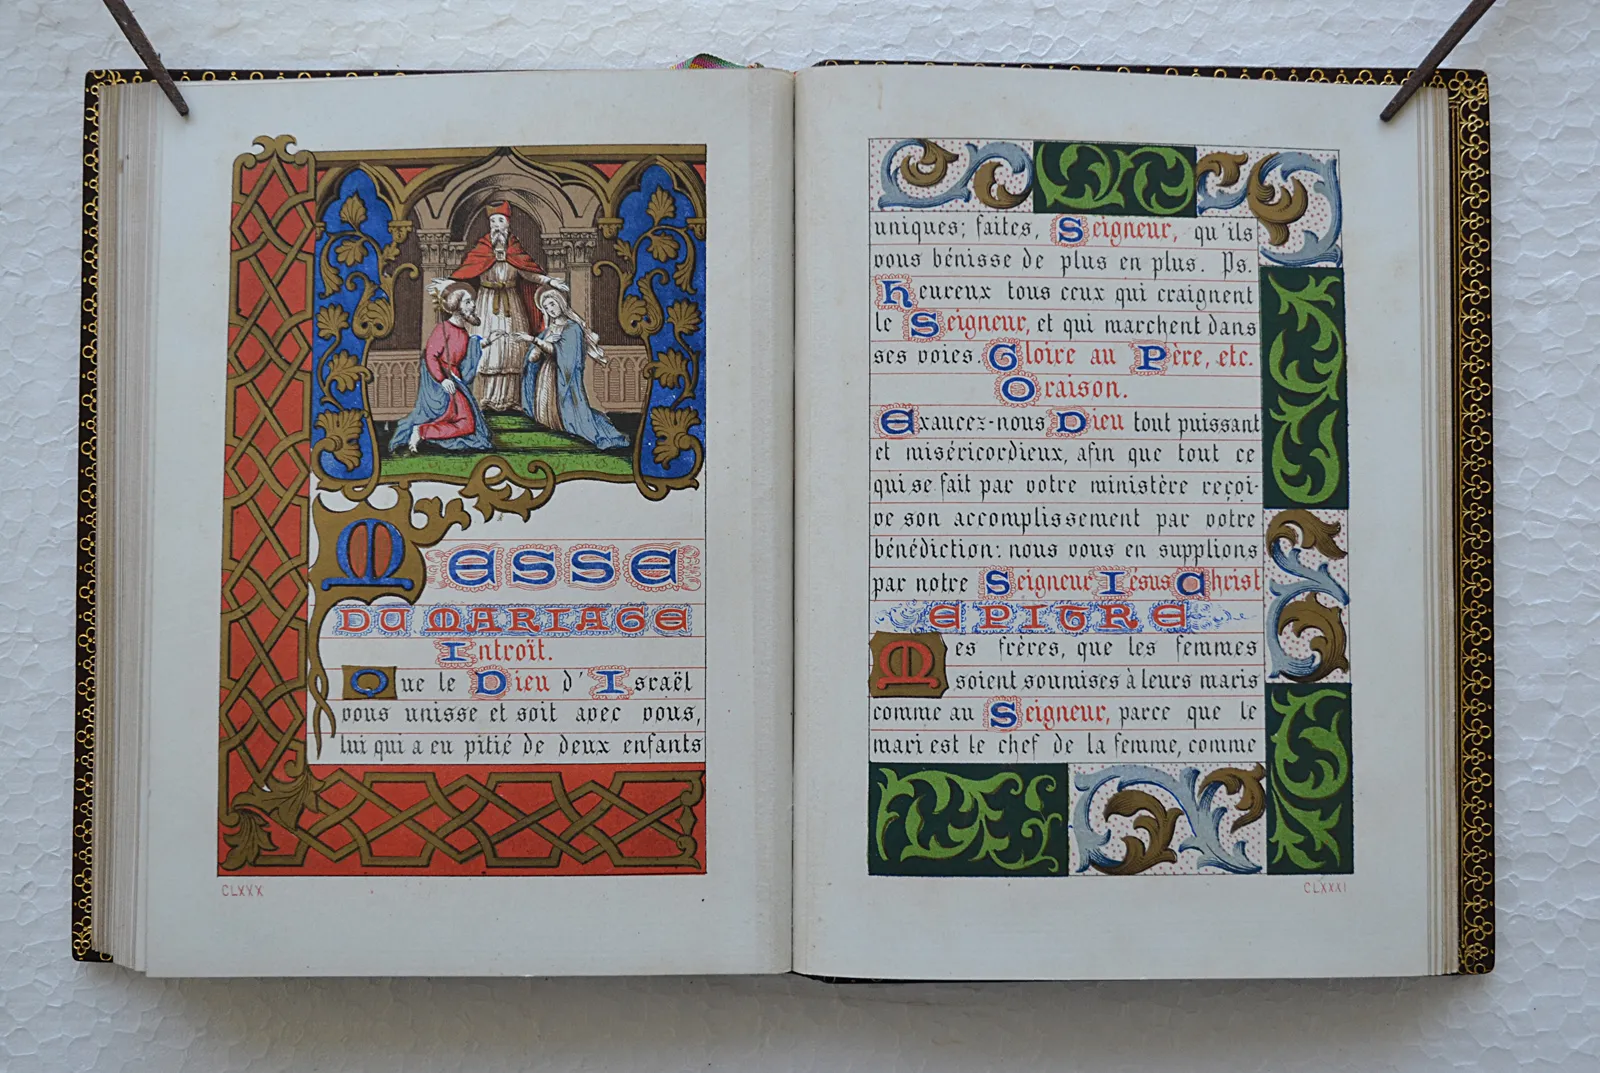 MESSE
DU MARIAGE
Introït.
Que le Dieu d'Israël
vous unisse et soit avec vous,
lui qui a eu pitié de deux enfants
CLXXX
uniques; faites, Seigneur, qu'ils
vous bénisse de plus en plus. Ps.
Heureux tous ceux qui craignent
le Seigneur, et qui marchent dans
ses voies. Gloire au Père, etc.
Oraison.
Exaucez-nous Dieu tout puissant
et miséricordieux, afin que tout ce
qui se fait par votre ministère reçoi-
ve son accomplissement par votre
bénédiction: nous vous en supplions
par notre Seigneur Iésus Christ
EPITRE
Mes frères, que les femmes
soient soumises à leurs maris
comme au Seigneur, parce que le
mari est le chef de la femme, comme
CLXXXI